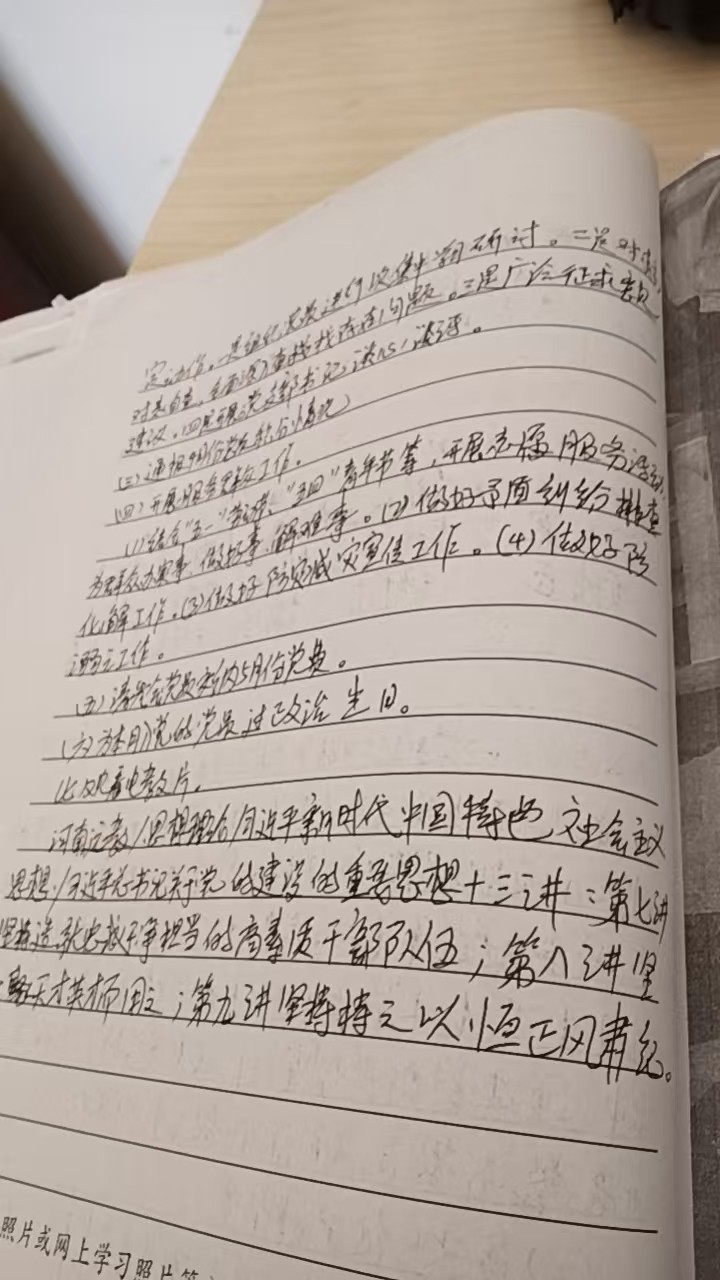 定动作。一是组织党员进行集中学习研讨。二是对
对表自查,全面深入查摆找存在问题。三是广泛征求意见
建议。四是开展党支部书记谈心谈话。
(三)通报4月份党员积分情况
(四)开展服务群众工作。
(1)结合"五一"劳动、"五四"青年节等,开展志愿服务活动,
为群众办实事、做好事、解难事。(2)做好矛盾纠纷排查
化解工作。(3)做好防灾减灾宣传工作。(4)做好防
溺亡工作。
(五)请各党员交纳5月份党费。
(六)为本月入党的党员过政治生日。
(七)观看电教片。
河南远教/思想理论/习近平新时代中国特色社会主义
思想/习近平总书记关于党的建设的重要思想十三讲:第七讲
坚持造就忠诚干净担当的高素质干部队伍;第八讲坚
聚天才英才而用之;第九讲坚持持之以恒正风肃纪。
照片或网上学习照片